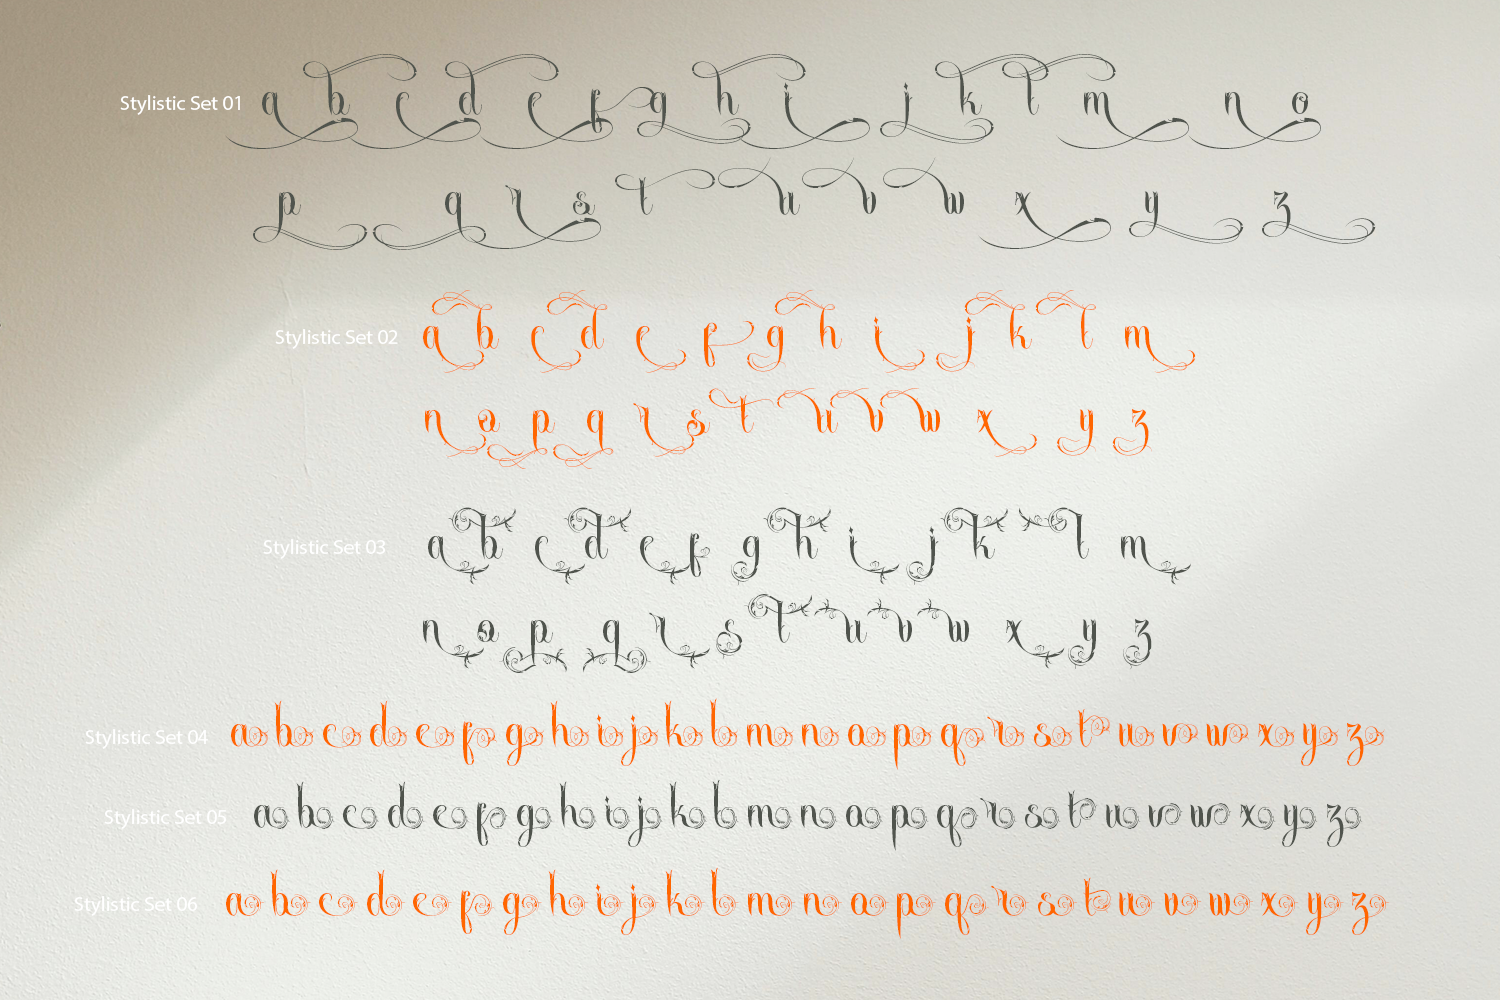 Stylistic Set 01 a b c d e f g h i j k l m n o
p q r s t u v w x y z
Stylistic Set 02 a b c d e f g h i j k l m
n o p q r s t u v w x y z
Stylistic Set 03 a b c d e f g h i j k l m
n o p q r s t u v w x y z
Stylistic Set 04 a b c d e f g h i j k l m n o p q r s t u v w x y z
Stylistic Set 05 a b c d e f g h i j k l m n o p q r s t u v w x y z
Stylistic Set 06 a b c d e f g h i j k l m n o p q r s t u v w x y z